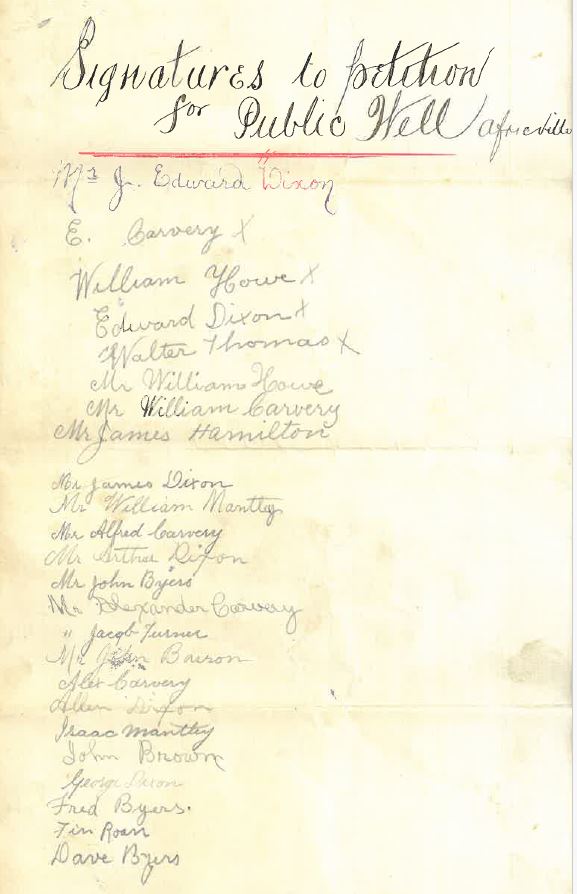 Signatures to petition
for Public Well Africville
Mr J. Edward Dixon
E. Carvery X
William Howe X
Edward Dixon X
Walter Thomas X
Mr William Howe
Mr William Carvery
Mr James Hamilton
Mr James Dixon
Mr William Mantley
Mr Alfred Carvery
Mr Arthur Dixon
Mr John Byers
Mr Alexander Carvery
" Jacob Turner
Mr John
Alex Carvery
Allen Dixon
Isaac Mantley
John Brown
George Dixon
Fred Byers.
Tin Roan
Dave Byers